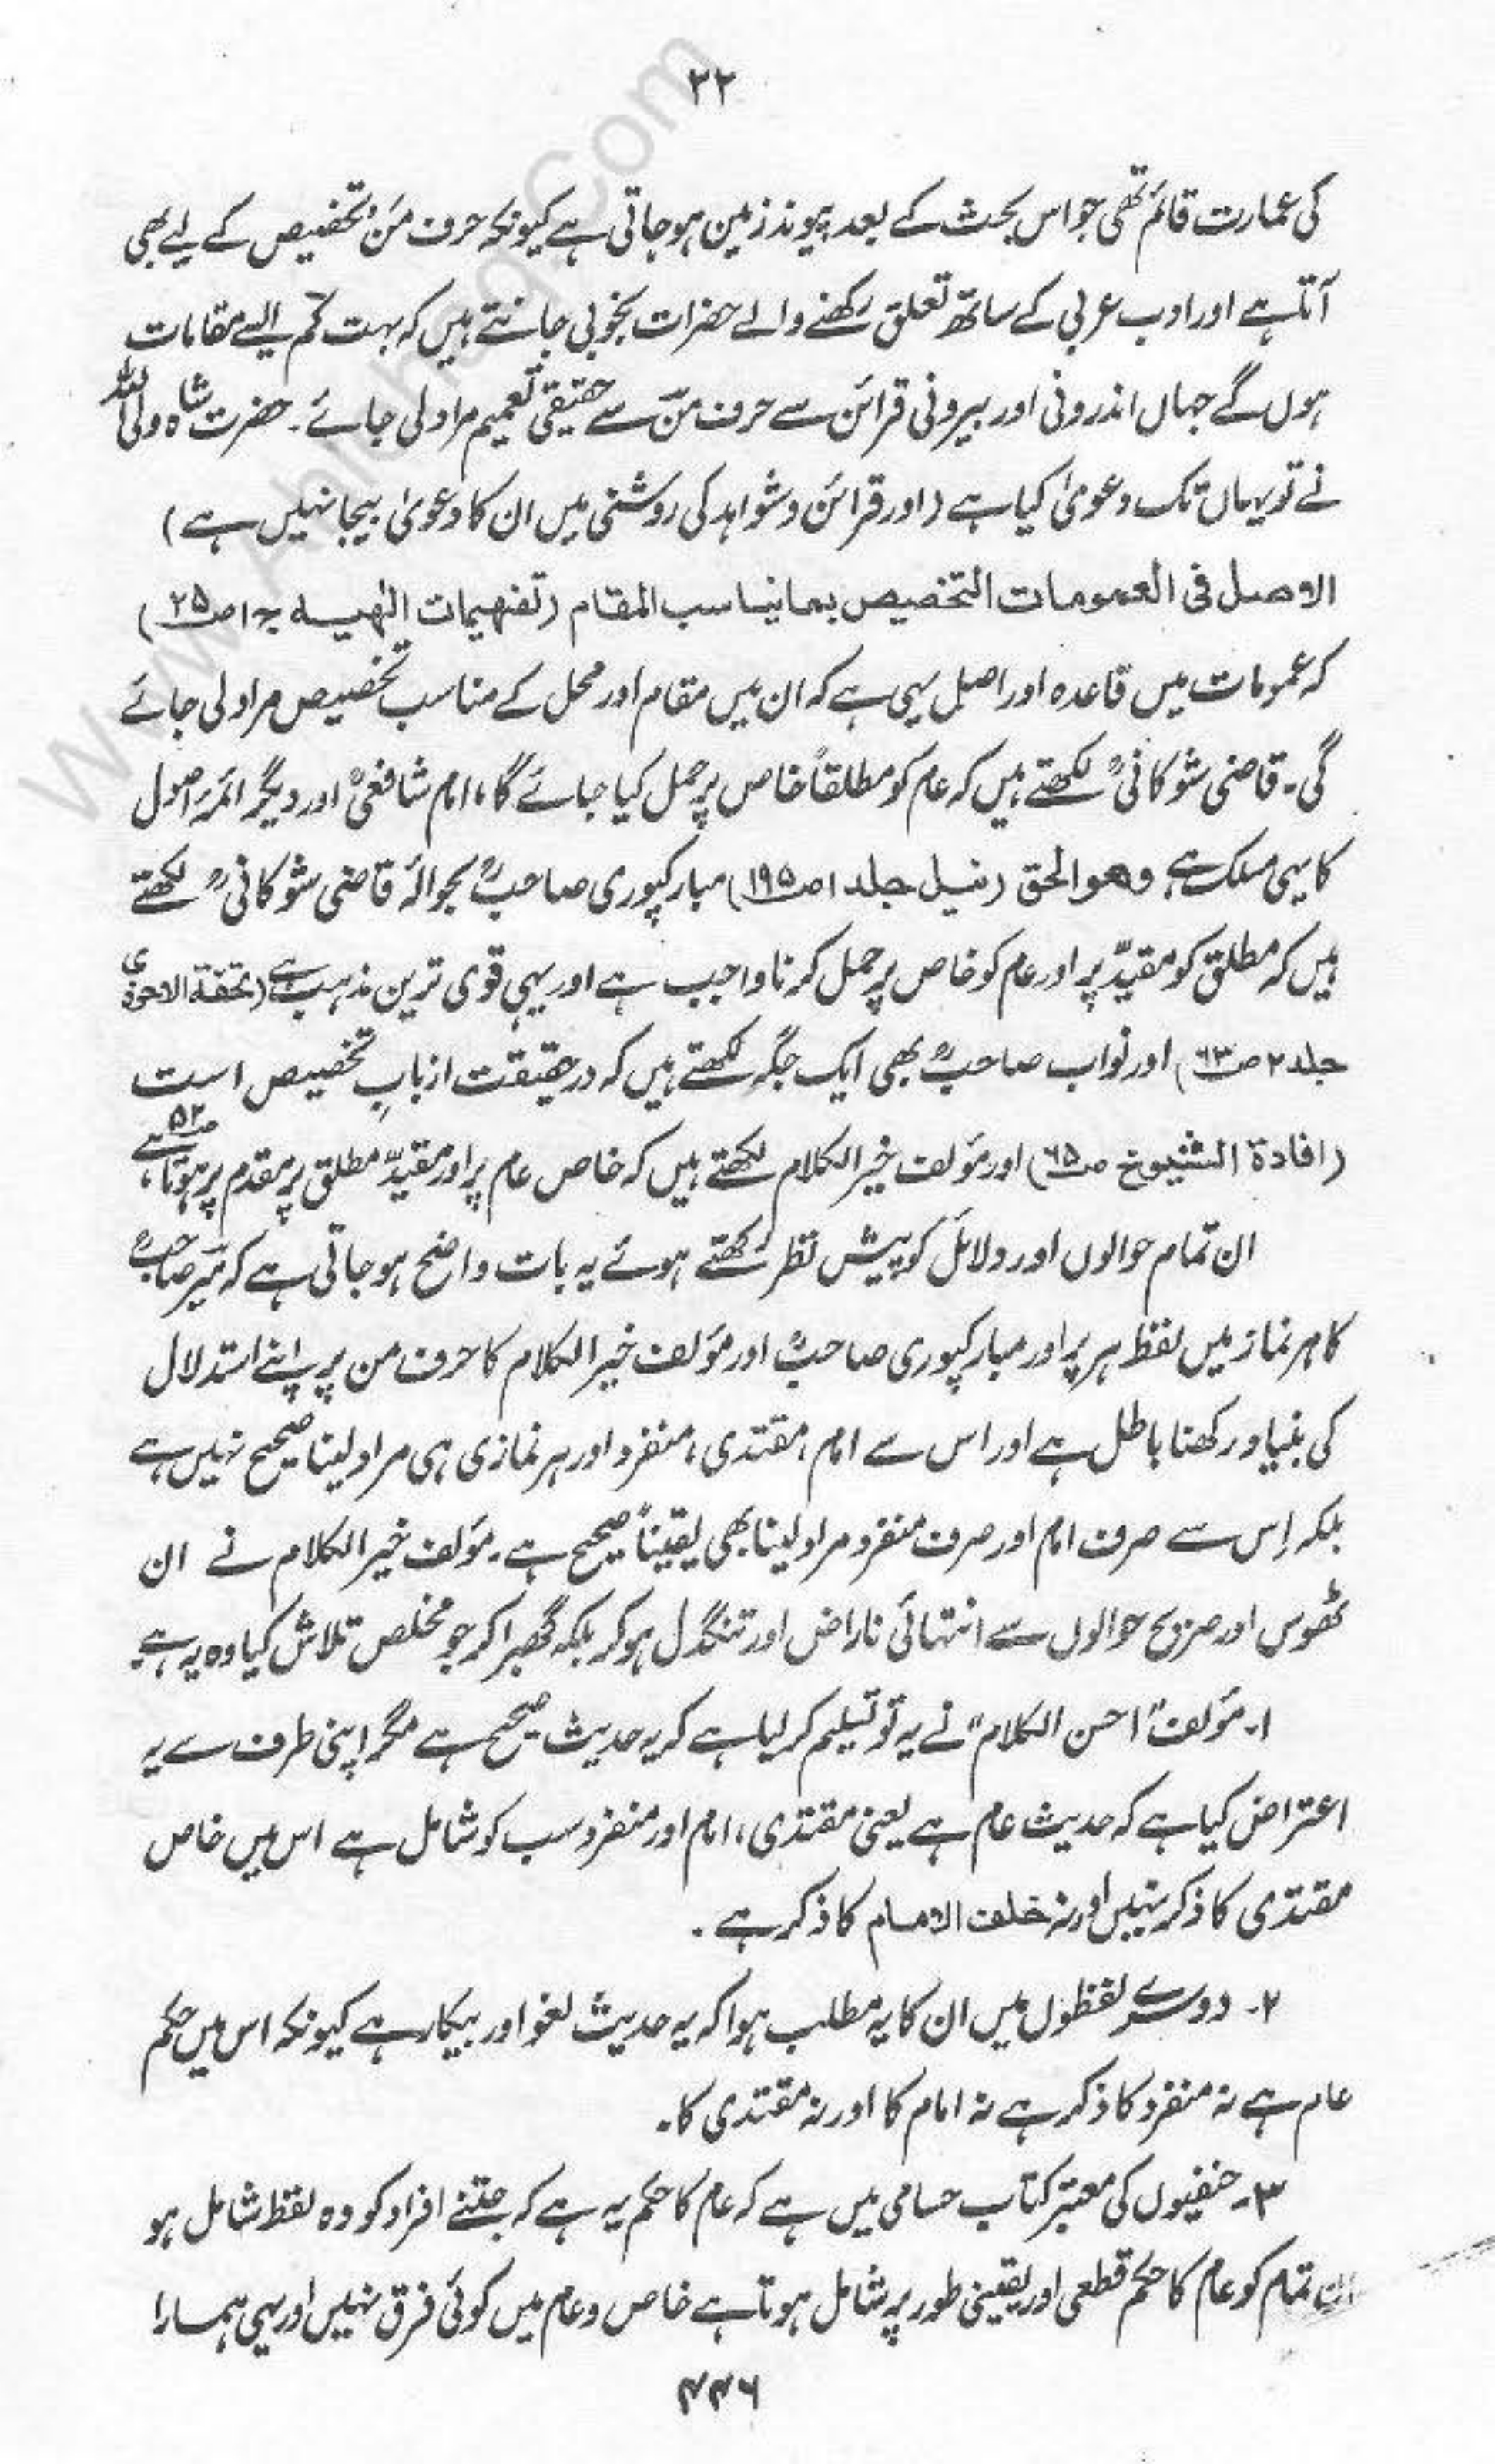 ۲۲
کی عمارت قائم تھی جو اس بحث کے بعد پیوند زمین ہو جاتی ہے کیونکہ حرف مَنْ تخصیص کے لیے بھی
آتا ہے اور ادب عربی کے ساتھ تعلق رکھنے والے حضرات بخوبی جانتے ہیں کہ بہت کم ایسے مقامات
ہوں گے جہاں اندرونی اور بیرونی قرائن سے حرف مَنْ سے حقیقی تعمیم مراد لی جائے۔ حضرت شاہ ولی اللہ
نے تو یہاں تک دعویٰ کیا ہے (اور قرائن و شواہد کی روشنی میں ان کا دعویٰ بیجا نہیں ہے)
الاصل فی العمومات التخصیص بما یناسب المقام (تفہیمات الٰہیہ ج۱ ص۲۵)
کہ عمومات میں قاعدہ اور اصل یہی ہے کہ ان میں مقام اور محل کے مناسب تخصیص مراد لی جائے
گی۔ قاضی شوکانیؒ لکھتے ہیں کہ عام کو مطلقاً خاص پر حمل کیا جائے گا، امام شافعیؒ اور دیگر ائمۂ اصول
کا یہی مسلک ہے وھو الحق (نیل جلد ۱ ص۱۹۵) مبارکپوری صاحبؒ بحوالۂ قاضی شوکانیؒ لکھتے
ہیں کہ مطلق کو مقیّد پر اور عام کو خاص پر حمل کرنا واجب ہے اور یہی قوی ترین مذہب ہے (تحفۃ الاحوذی
جلد ۲ ص۶۳) اور نواب صاحبؒ بھی ایک جگہ لکھتے ہیں کہ در حقیقت از بابِ تخصیص است
(افادۃ الشیوخ ص۶۵) اور مؤلف خیر الکلام لکھتے ہیں کہ خاص عام پر اور مقیّد مطلق پر مقدم پر ہوتا ہے، ص۵۲
ان تمام حوالوں اور دلائل کو پیش نظر رکھتے ہوئے یہ بات واضح ہو جاتی ہے کہ میر صاحبؒ
کا ہر نماز میں لفظ ہر پر اور مبارکپوری صاحبؒ اور مؤلف خیر الکلام کا حرف من پر اپنے استدلال
کی بنیاد رکھنا باطل ہے اور اس سے امام، مقتدی، منفرد اور ہر نمازی ہی مراد لینا صحیح نہیں ہے
بلکہ اِس سے صرف امام اور صرف منفرد مراد لینا بھی یقیناً صحیح ہے۔ مؤلف خیر الکلام نے ان
ٹھوس اور صریح حوالوں سے انتہائی ناراض اور تنگدل ہو کر بلکہ گھبرا کر جو مخلص تلاش کیا وہ یہ ہے۔
۱۔ مؤلف "احسن الکلام" نے یہ تو تسلیم کر لیا ہے کہ یہ حدیث صحیح ہے مگر اپنی طرف سے یہ
اعتراض کیا ہے کہ حدیث عام ہے یعنی مقتدی، امام اور منفرد سب کو شامل ہے اس میں خاص
مقتدی کا ذکر نہیں اور نہ خلف الامام کا ذکر ہے۔
۲۔ دوسرے لفظوں میں ان کا یہ مطلب ہوا کہ یہ حدیث لغو اور بیکار ہے کیونکہ اس میں حکم
عام ہے نہ منفرد کا ذکر ہے نہ امام کا اور نہ مقتدی کا۔
۳۔ حنفیوں کی معتبر کتاب حسامی میں ہے کہ عام کا حکم یہ ہے کہ جتنے افراد کو وہ لفظ شامل ہو
ان تمام کو عام کا حکم قطعی اور یقینی طور پر شامل ہوتا ہے خاص و عام میں کوئی فرق نہیں اور یہی ہمارا
۴۴۶
www.Ahlehaq.Com